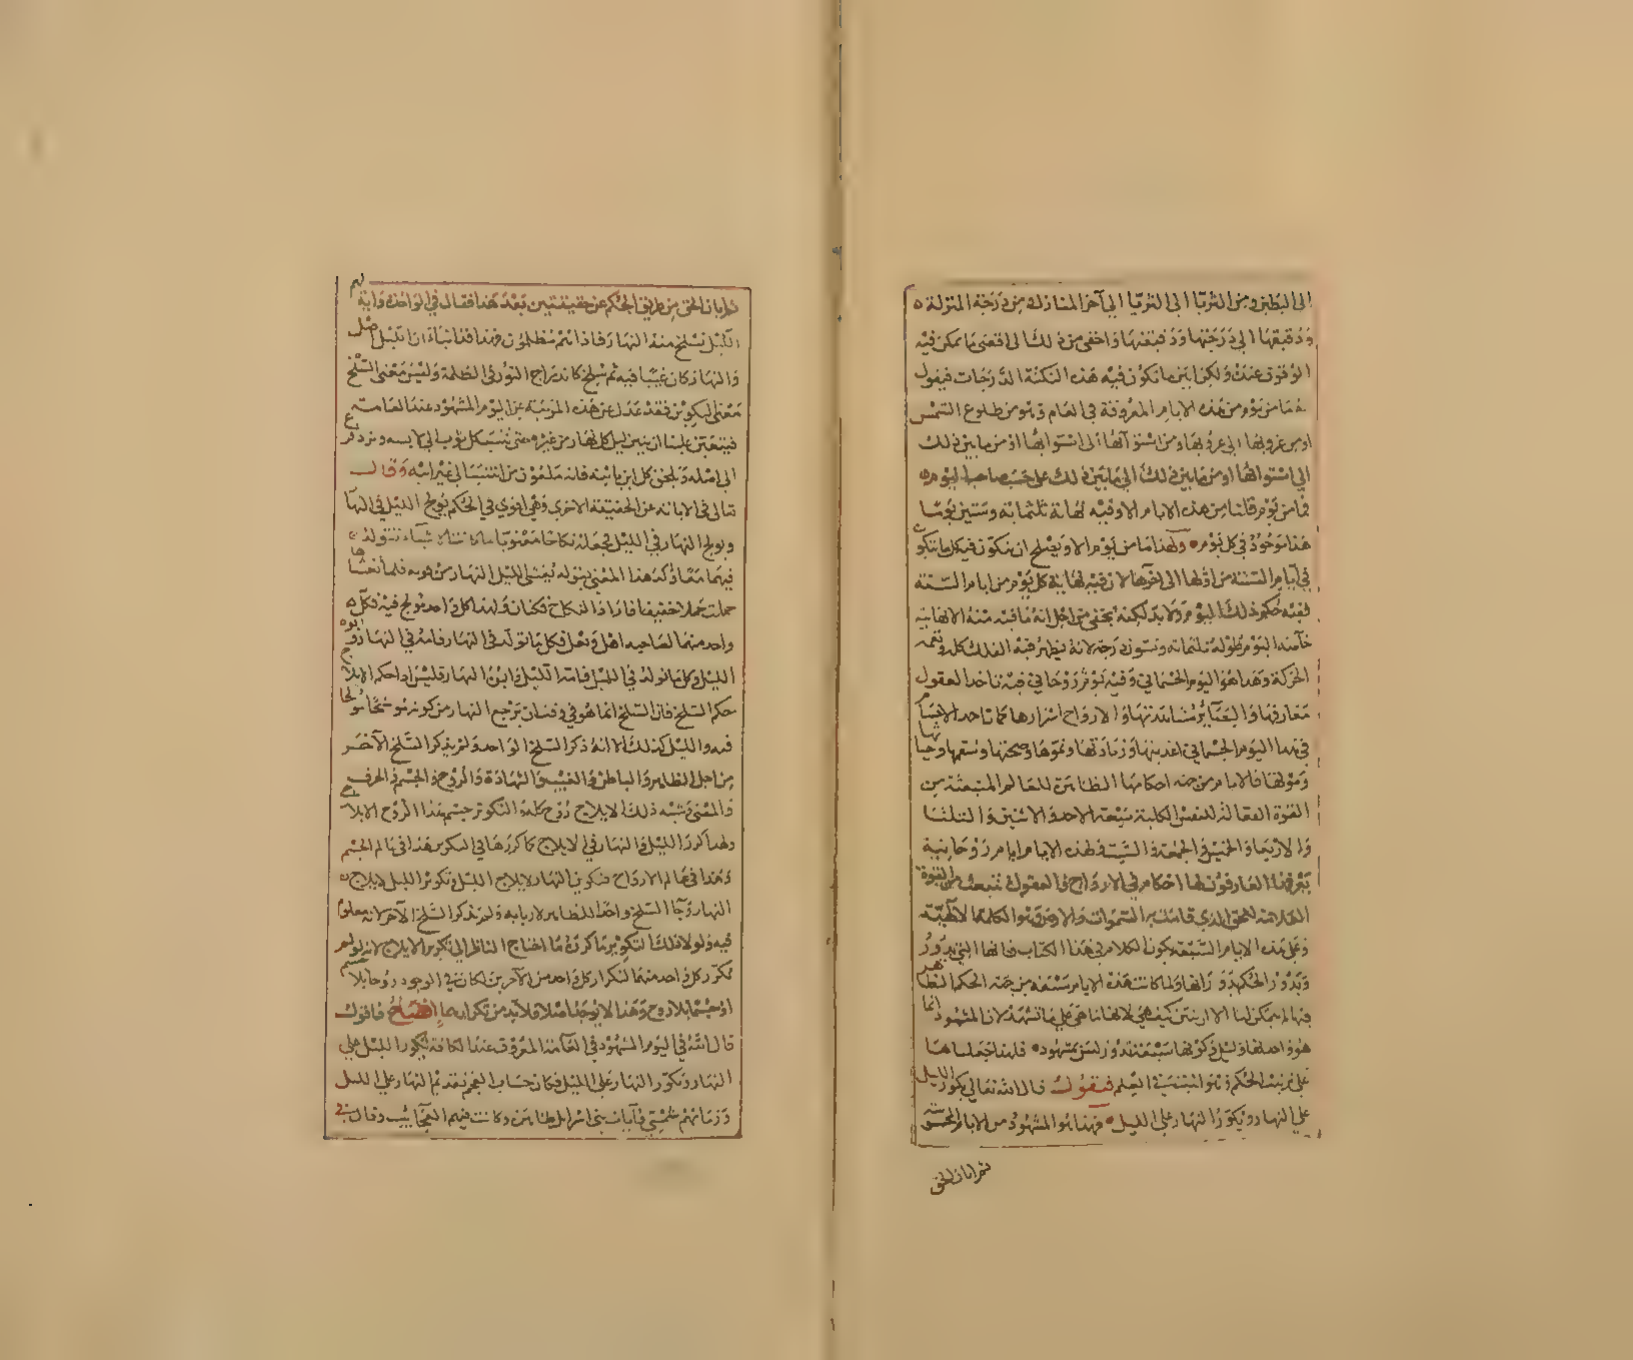 الى البطين ومن الثريا الى الثريا الى آخر المنازل من درجة المنزلة
ودقيقتها الى درجتها ودقيقتها واخفى من ذلك الى اقصى ما يمكن فيه
الوقوف عنده ولكن ابين ما تكون فيه هذه النكتة الدرجات فيقول
فما من يوم من هذه الايام المعروفة في العام وهو من طلوع الشمس
او من غروبها الى غروبها ومن استوآئها الى استوائها او من ما بين ذلك
الى استوائها او من ما بين ذلك الى ما بين ذلك على حسب صاحب اليوم
فما من يوم قلنا من هذه الايام الا وفيه نهاية ثلثمائة وستين يوما
هذا موجود في كل يوم ولهذا ما من يوم الا ويصلح ان يكون فيه كل ما يتكون
في ايام السنة من اولها الى آخرها لان فيه نهاية كل يوم من ايام السنة
ففيه حكم ذلك اليوم ولا بد لكنه يخفى من اجل انه ما فيه منه الا نهايته
اليوم طوله ثلثمائة وستون درجة لانه يظهر فيه الفلك كله وتعمه
الحركة وهذا هو اليوم الجسماني وفيه يوم روحاني فيه تاخذ العقول
معارفها والبصائر مشاهدتها والارواح اسرارها كما تاخذ الاجسام
في هذا اليوم الجسماني اغذيتها وزيادتها ونموها وصحتها وسقمها وحياتها
وموتها فالايام من جهة احكامها الظاهرة للعالم المنبعثة من
القوة الفعالة للنفس الكلية سبعة الاحد والاثنين والثلثا
والاربعا والخميس والجمعة والسبت ولهذه الايام ايام روحانية
يعرفها العارفون لها احكام في الارواح والعقول تنبعث من القوة
العلامة للحق الذي قامت به السموات والارض وهو الكلمة الالهية
وعلى هذه الايام السبعة يكون الكلام في هذا الكتاب فانها التي يدور
فيها لم يمكن لنا الا ان نبين كيف هي لانها ما هي على ما تشهد لان المشهود انما
هو واحد لها وليل في كونها سبعة تدور ليس بمشهود فلهذا جعلناها
على ترتيب الحكم فنقول قال الله تعالى يكور الليل
على النهار ويكور النهار على الليل فهذا هو المشهود من الايام الحسية
ثم ابان الحق
ثم ابان الحق من طريق الحكم عن حقيقتين بعد هذا فقال في الواحدة وآية لهم
الليل نسلخ منه النهار فاذا هم مظلمون فهذا قد انباء ان الليل اصل
والنهار كان غيبا فيه ثم سلخ كاندراج النور في الظلمة وليس معنى السلخ
معنى التكوير فقد عدل عن هذه المرتبة عن اليوم المشهود عند العامة
فيتعين علينا ان نبين ليل كل نهار من غيره حتى ننسب كل ثوب الى لابسه ونرد كل فرع
الى اصله ونلحق كل ابن بابيه فانه ملعون من انتسب الى غير ابيه وقال
تعالى في الابانة عن الحقيقة الاخرى وهي اقوى في الحكم يولج الليل في النهار
ويولج النهار في الليل فجعله نكاحا معنويا لما كانت الاشياء تتولد
فيهما معا واكد هذا المعنى بقوله يغشى الليل النهار من قوله فلما تغشاها
حملت حملا خفيفا فاراد النكاح فكان ولهذا كل واحد يولج فيه فكل
واحد منهما لصاحبه اهل وبعل فكل ما تولد في النهار فامه النهار وابوه
الليل وكل ما تولد في الليل فامه الليل وابوه النهار فليس اذا حكم الايلاج
حكم السلخ فان السلخ انما هو في وقت ان يرجع النهار من كونه مولجا
فيه والليل كذلك الا انه ذكر السلخ الواحد ولم يذكر السلخ الآخر
من اجل الظاهر والباطن والغيب والشهادة والروح والجسم والحرف
والمعنى وشبه ذلك فالايلاج روح كله والتكوير جسم هذا الروح الايلاجي
ولهذا كرر الليل والنهار في الايلاج كما كررها في التكوير هذا في عالم الجسم
وهذا في عالم الارواح فتكوير النهار لايلاج الليل وتكوير الليل لايلاج
النهار وجآ السلخ واحدا للظاهر لاربابه ولم يذكر السلخ الآخر لانه معلوم
فيه ولولا ذلك التكوير ما كررنا ما احتاج الناظر الى تكوير الايلاج لانه لو لم
تكرر كل واحد منهما لتكرار كل واحد من الآخرين لكان في الوجود روحا بلا جسم
او جسما بلا روح وهذا لا يوجد اصلا فلا بد من تكرارهما افصاح فاقول
قال الله في اليوم المشهود في العامة المعروف عند الكافة يكور الليل على
النهار ويكور النهار على الليل فكان حساب العجم تقديم النهار على الليل
وزمانهم شمسي فآيات بني اسرائيل ظاهرة وكانت فيهم العجائب وقال في